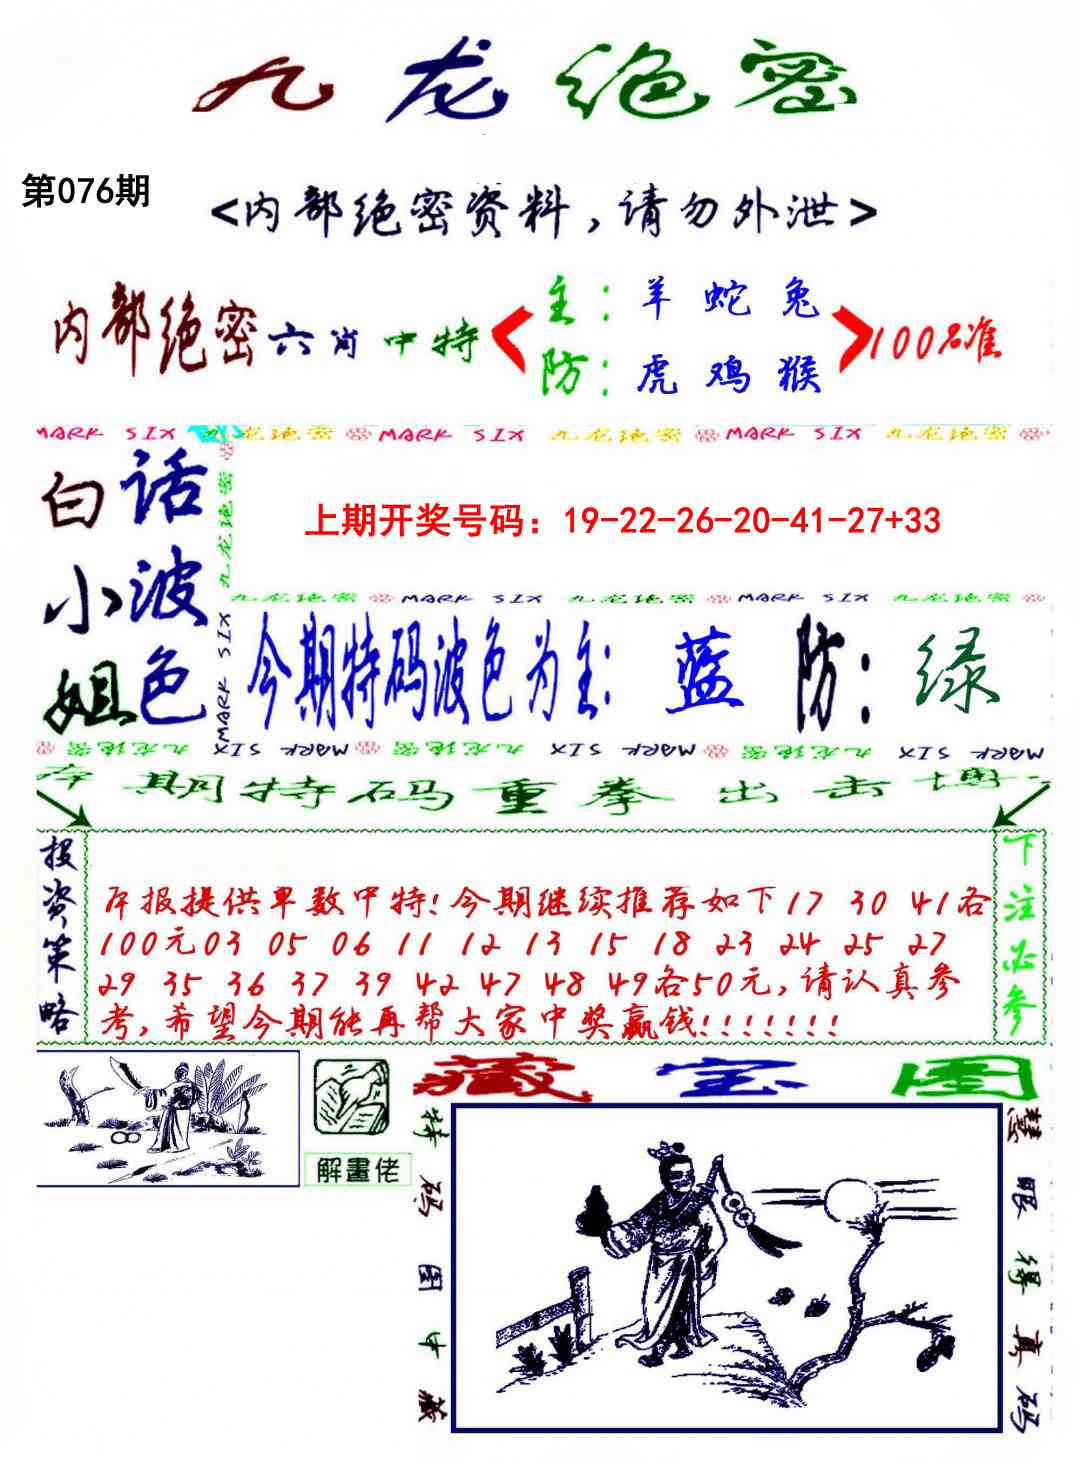 九龙绝密
第076期
<内部绝密资料，请勿外泄>
内部绝密六肖中特
主：羊 蛇 兔
防：虎 鸡 猴
100%准
MARK SIX 九龙绝密 MARK SIX 九龙绝密 MARK SIX 九龙绝密
白小姐
话波色
九龙绝密 MARK SIX
上期开奖号码：19-22-26-20-41-27+33
九龙绝密 MARK SIX 九龙绝密 MARK SIX 九龙绝密
今期特码波色为主：蓝 防：绿
九龙绝密 MARK SIX 九龙绝密 MARK SIX 九龙绝密 MARK SIX
本期特码重拳出击博
投资策略
本报提供单数中特!今期继续推荐如下17 30 41各
100元03 05 06 11 12 13 15 18 23 24 25 27
29 35 36 37 39 42 47 48 49各50元,请认真参
考,希望今期能再帮大家中奖赢钱!!!!!!!
下注必参
解畫佬
藏宝图
特码图中藏
慧眼得真码